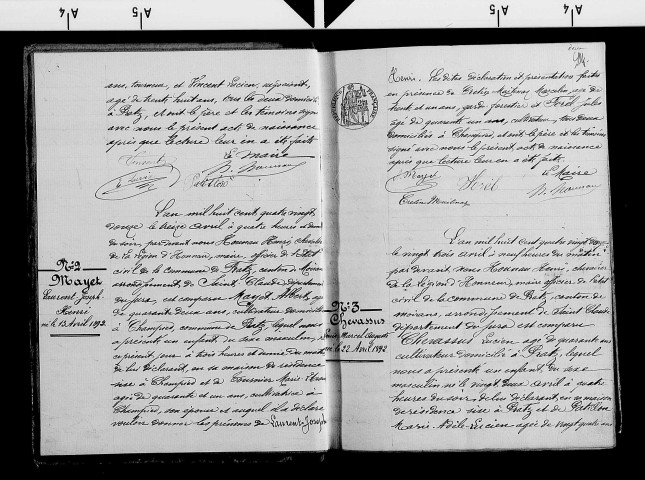 ans, tourneur, et Vincent Lucien, négociant,
agé de trente huit ans, tous les deux domiciliés
à Pratz, et ont le père et les témoins signé
avec nous le présent acte de naissance
après que lecture leur en a été faite
Le Maire
Vincent
L'an mil huit cent quatre vingt
douze le treize avril à quatre heures et demie
du soir par devant nous Honneau Henri, chevalier
de la Légion d'Honneur, maire, officier de l'état
civil de la commune de Pratz, canton de Moirans
arrondissement de Saint Claude, département
du Jura, est comparu Mayet Albert, agé
de quarante deux ans, cultivateur domicilié
à Champied, commune de Pratz, lequel nous
a présenté un enfant du sexe masculin, né
le présent jour à trois heures et demie du matin
de lui déclarant, en sa maison de résidence
sise à Champied et de Fournier Marie
agée de quarante et un ans, cultivatrice à
Champied, son épouse et auquel il a déclaré
vouloir donner les prénoms de Laurent-Joseph
N:2
Mayet
Laurent Joseph
Henri
né le 13 Avril 1892
Henri. Les dites déclaration et présentation faites
en présence de
trente et un ans, garde forestier et Forel Jules
agé de quarante un ans, cultivateur, tous deux
domiciliés à Champied, et ont le père et les témoins
signé avec nous le présent acte de naissance
après que lecture leur en a été faite.
Le Maire
Mayet
N:3
Chevassus
Louis Marcel Auguste
né le 22 Avril 1892
L'an mil huit cent quatre vingt douze
le vingt trois avril à neuf heures du matin
par devant nous Honneau Henri, chevalier
de la Légion d'Honneur maire officier de l'état
civil de la commune de Pratz, canton de
Moirans, arrondissement de Saint Claude
département du Jura est comparu
Chevassus Lucien agé de quarante ans
cultivateur domicilié à Pratz, lequel
nous a présenté un enfant du sexe
masculin né le vingt deux avril à quatre
heures du soir de lui déclarant, en sa maison
de résidence sise à Pratz et de
Marie Adèle Lucien agée de vingt quatre ans
A|4
A|5
A|5
A|4